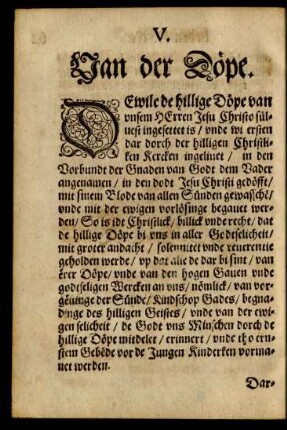 V.
Van der Döpe.
DEwile de hillige Döpe van
vnsem HErren Jesu Christo sül-
uest ingesettet is / vnde wi ersten
dar dorch der hilligen Christli-
ken Kercken ingeliuet / in den
Vorbundt der Gnaden van Godt dem Vader
angenamen / in den dodt Jesu Christi gedöfft /
mit sinem Blode van allen Sünden gewaschē /
vnde mit der ewigen vorlösinge begauet wer-
den / So is idt Christlick / billick vnde recht / dat
de hillige Döpe bi vns in aller Godtselicheit /
mit groter andacht / solennitet vnde reuerentie
geholden werde / vp dat alle de dar bi sint / van
erer Döpe / vnde van den hogen Gauen vnde
godtseligen Wercken an vns / nömlick / van vor-
geuinge der Sünde / Kindschop Gades / begna-
dinge des hilligen Geistes / vnde van der ewi-
gen selicheit / de Godt vns Minschen dorch de
hillige Döpe mitdelet / erinnert / vnde tho ern-
stem Gebede vor de Jungen Kinderken vorma-
net werden.
Dar-